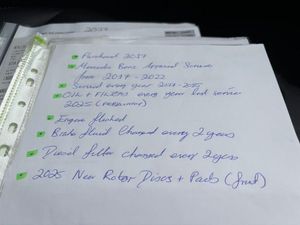 2017
Purchased 2017
Mercedes Benz Approved Service
from 2017 - 2022
Serviced every year 2017-2025
Oil + Filters every year last service
2025
Engine flushed
Brake fluid Changed every 2 years
Diesel filter changed every 2 years
2025 New Rotor Discs + Pads (front)